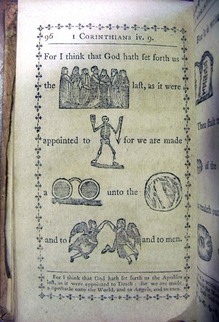 96 1 CORINTHIANS iv. 9.
For I think that God hath ſet forth us
the laſt, as it were
appointed to for we are made
a unto the
and to and to men.
For I think that God hath ſet forth us the Apoſtles
laſt, as it were appointed to Death: for we are made
a ſpectacle unto the World, and to Angels, and to men.